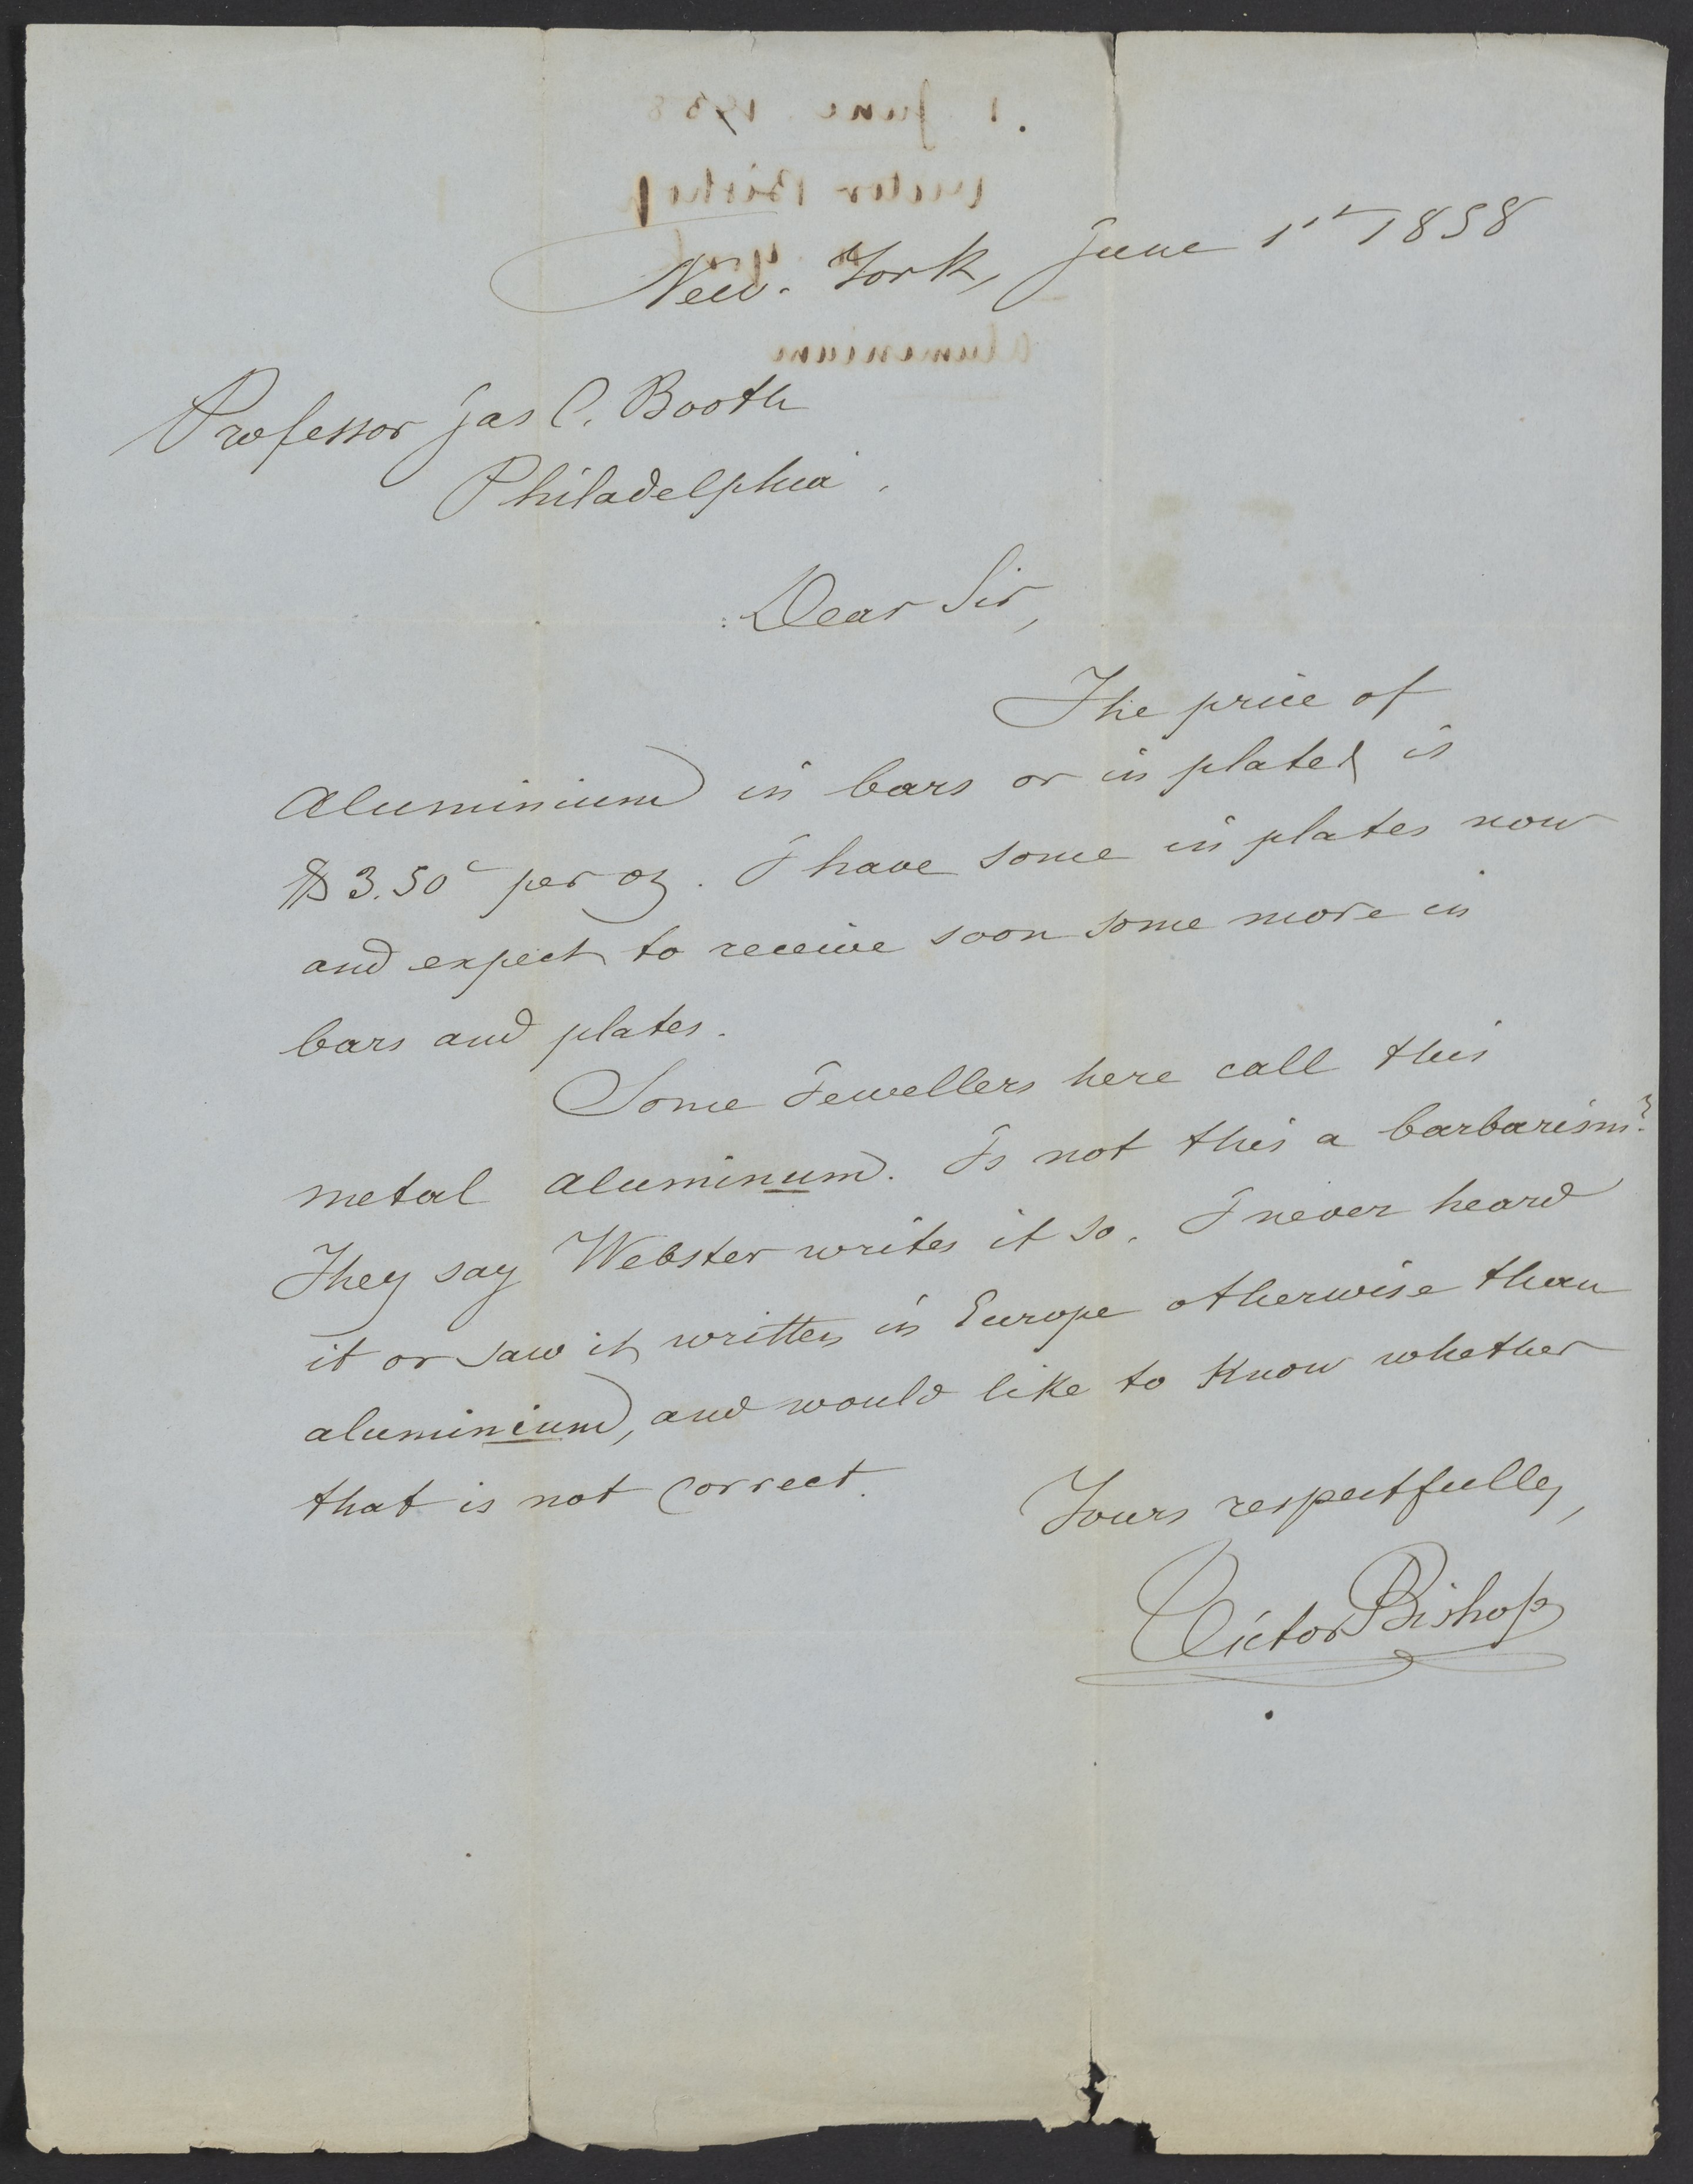 New-York, June 1st 1858
Professor Jas C. Booth
Philadelphia.
Dear Sir,
The price of
Aluminium in bars or in plates is
$3.50c per oz. I have some in plates now
and expect to receive soon some more in
bars and plates.
Some Jewellers here call this
metal aluminum. Is not this a barbarism?
They say Webster writes it so. I never heard
it or saw it written in Europe otherwise than
aluminium, and would like to know whether
that is not correct.
Yours respectfully,
Victor Bishop
1 June 1858
Victor Bishop
Aluminium